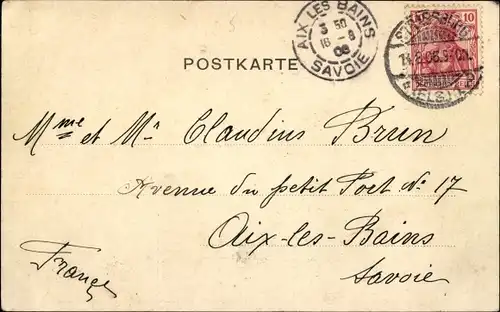 10
AIX LES BAINS
3 50
16 - 8
06
SAVOIE
STRASSBURG
(ELS.)
POSTKARTE
Mme et Mr Claudius Brun
Avenue du petit Port No 17
Aix-les-Bains
Savoie
France